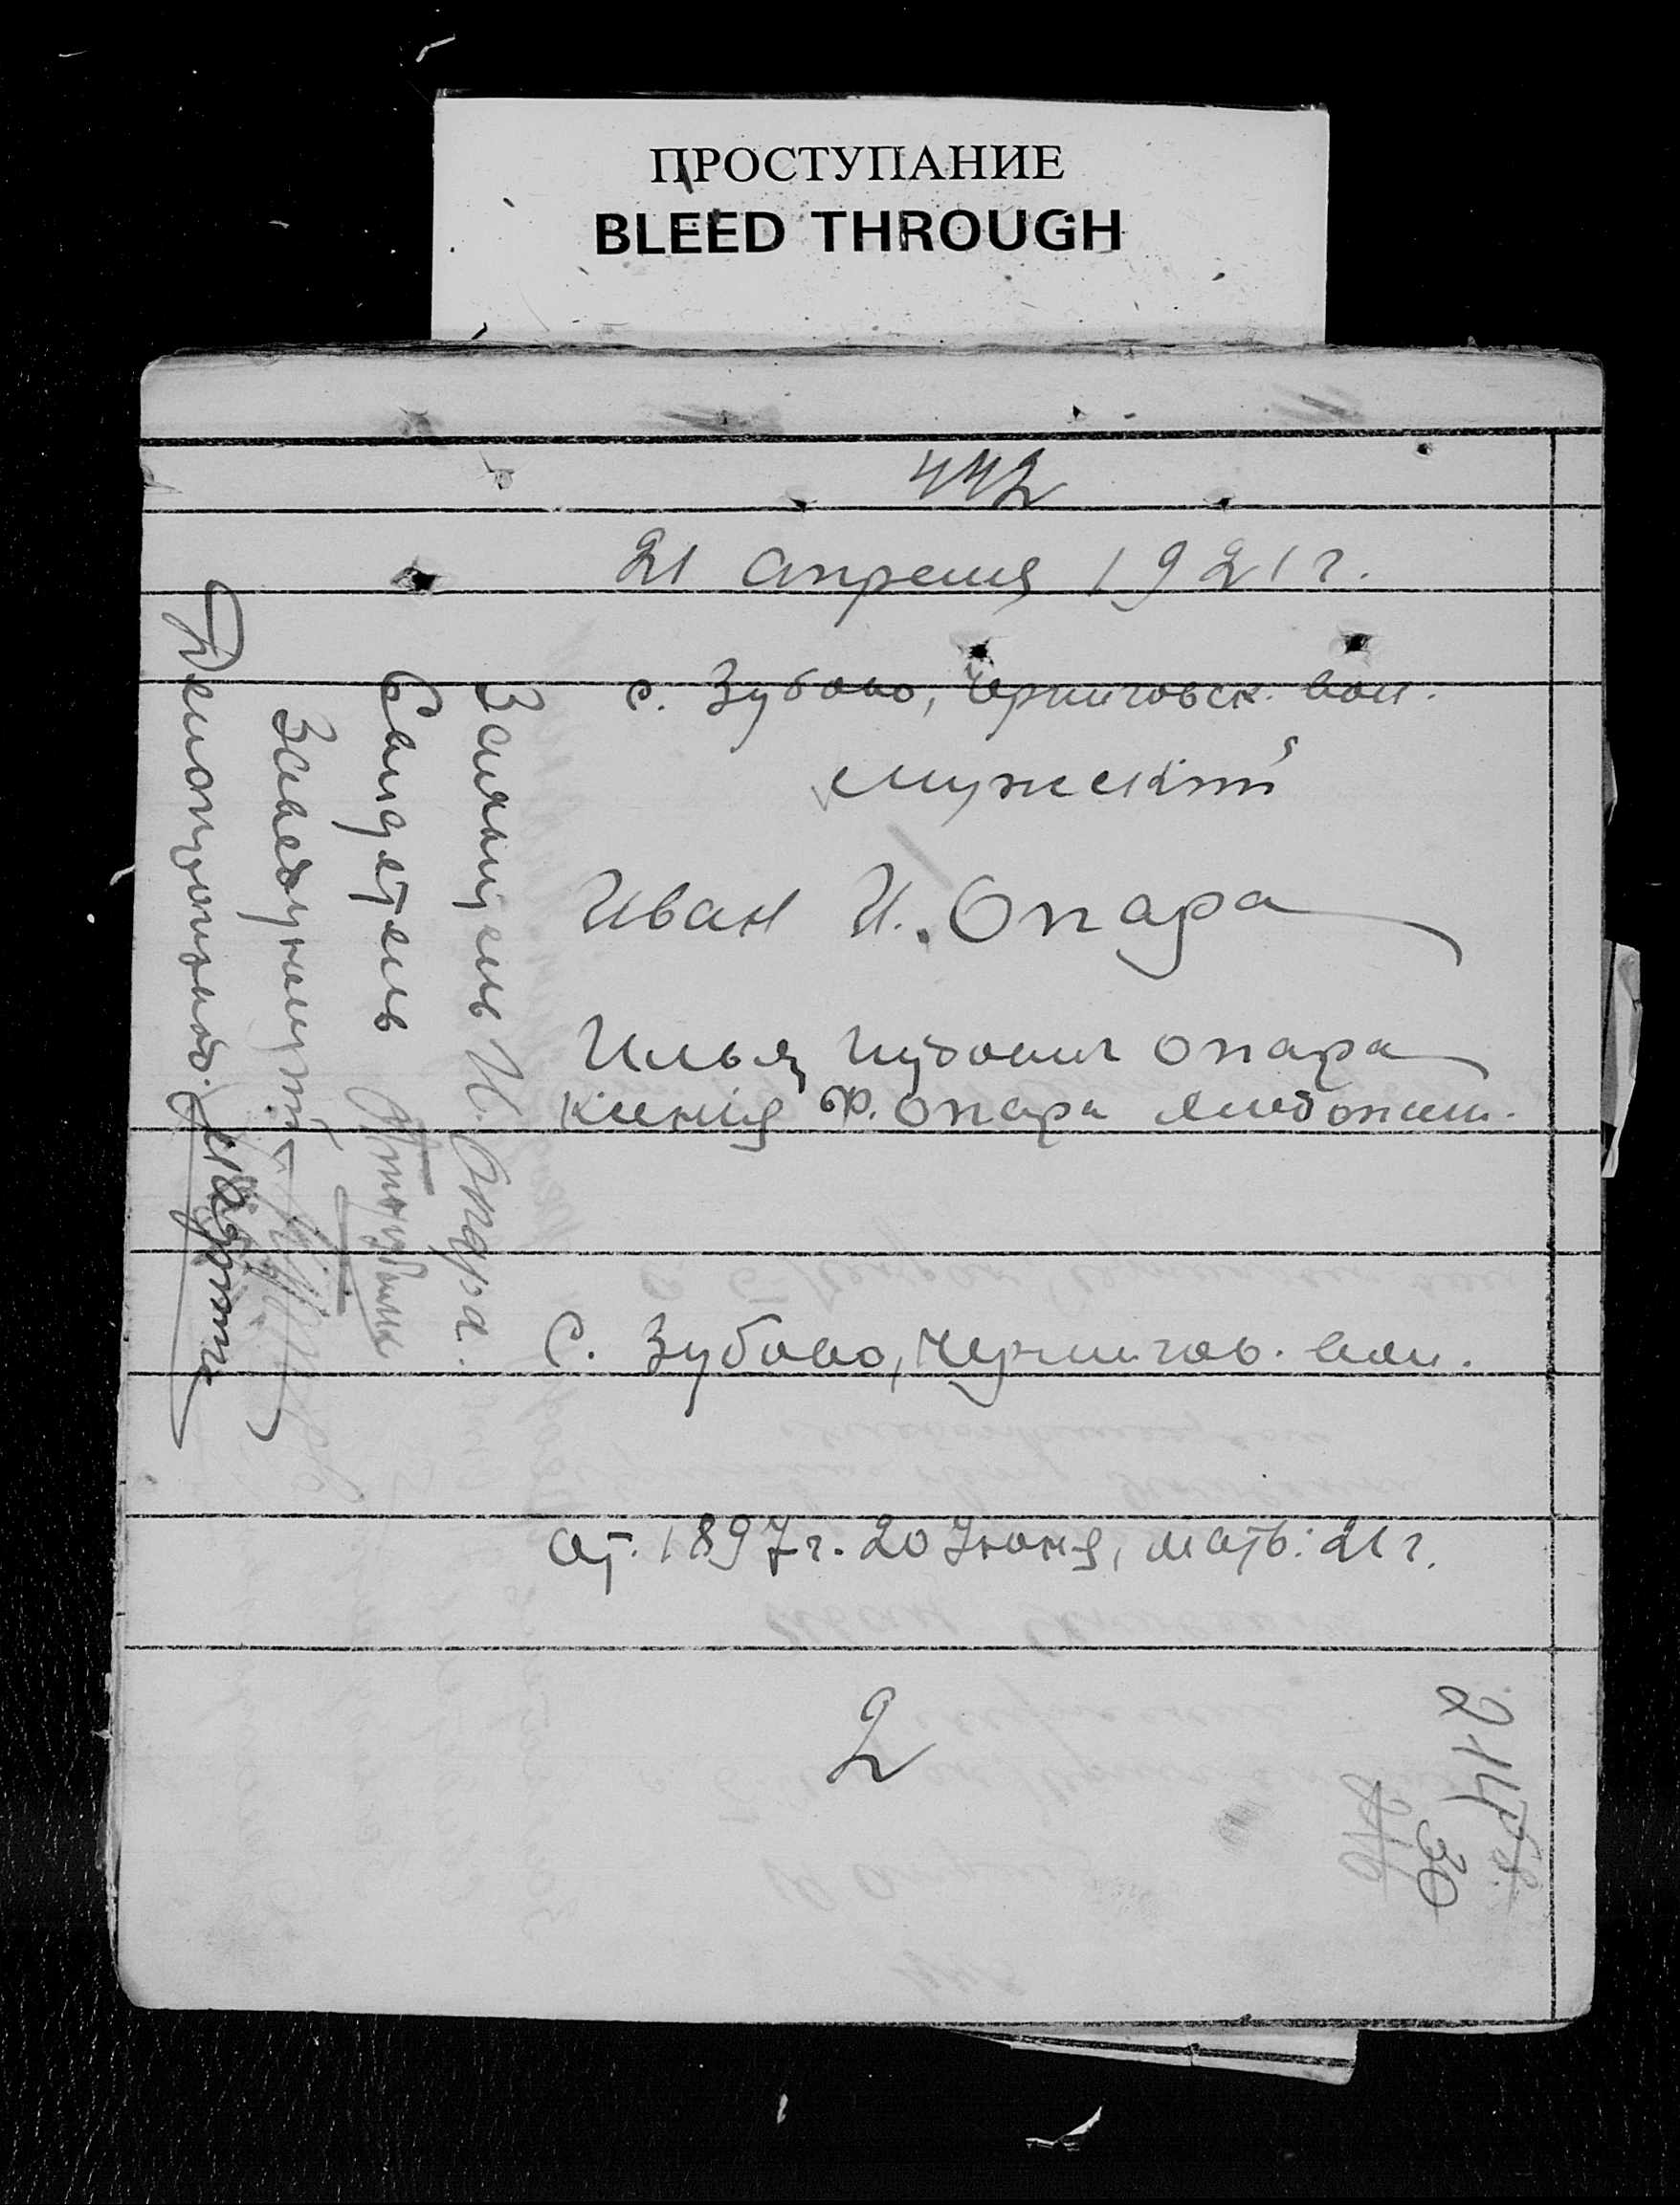 ПРОСТУПАНИЕ
BLEED THROUGH
442
21 апреля 1921 г.
с. Зубово, Черниговск. вол.
мужский
Иван И. Опара
Илья Иудович Опара
Опара хлебопаш.
С. Зубово, Чернигов. вол.
от. 1897 г. 20 Июня, мать: 21 г.
2
Заявитель И. Опара.
Свидетель
Заведующий
Делопроизвод.
214
30